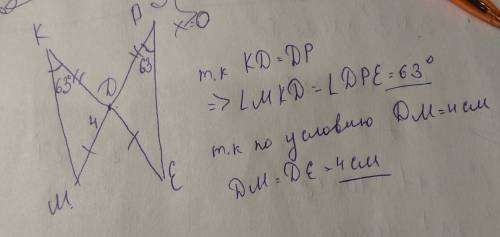 x=0
К
Р
63°
63
D
4
М
E
т.к KD = DP
=> ∠MKD = ∠DPE = 63°
т.к по условию DM = 4 см
DM = DE = 4 см